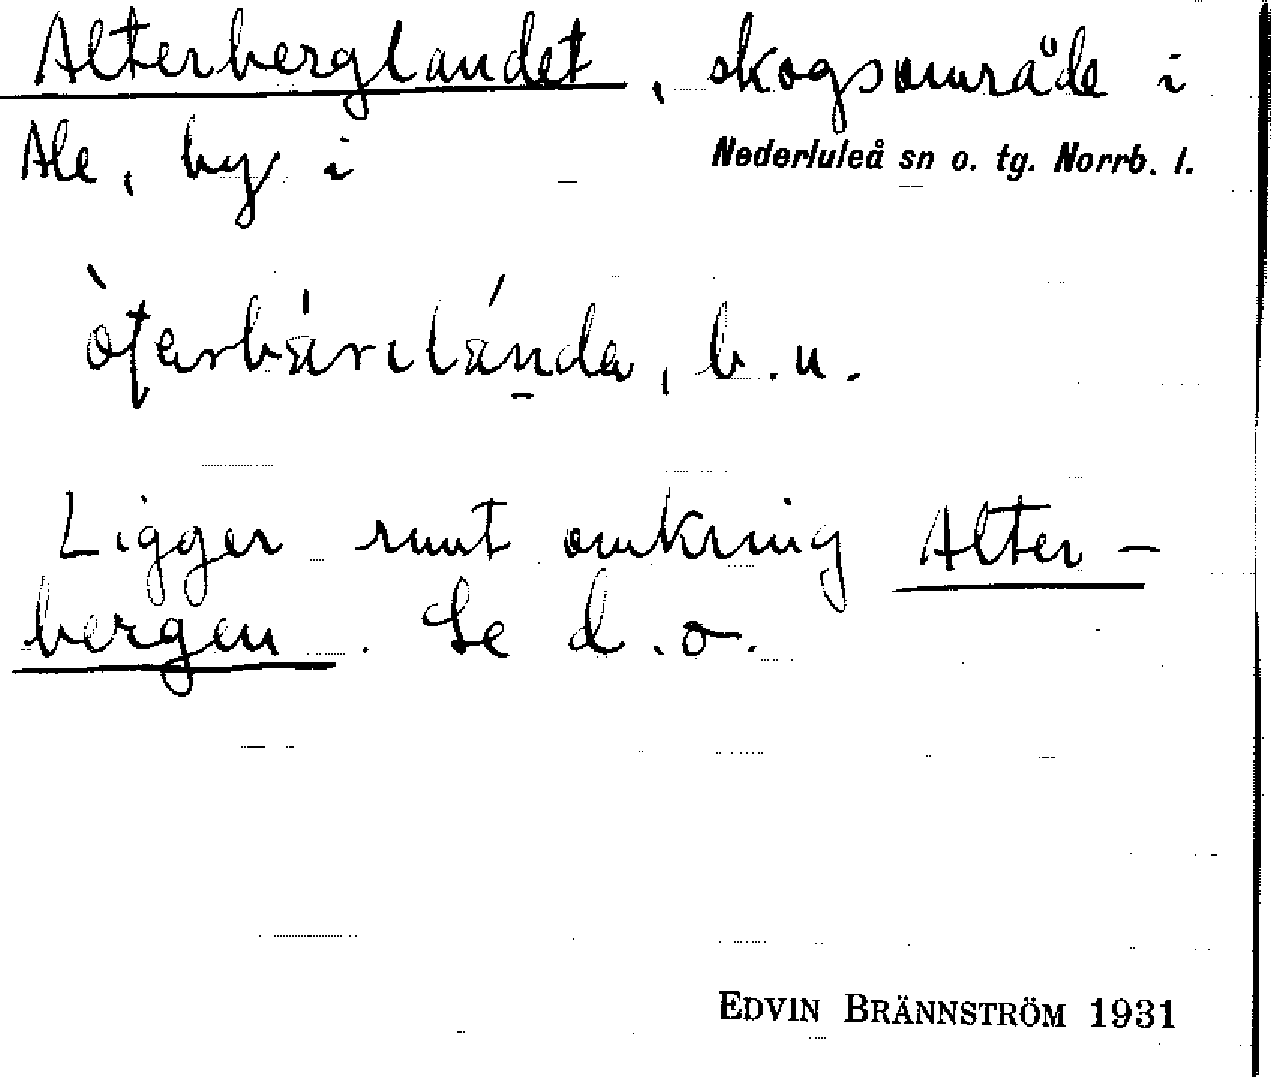 Alterberglandet, skogsområde i
Ale, by i Nederluleå sn o. tg. Norrb. l.
b.u.
Ligger runt omkring Alter-
bergen. Se d.o.
EDVIN BRÄNNSTRÖM 1931